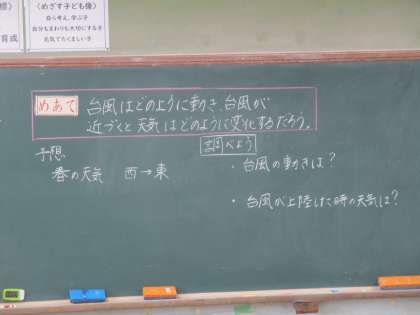 標》
育成
《めざす子ども像》
自ら考え、学ぶ子
自分もまわりも大切にする子
元気でたくましい子
めあて
台風はどのように動き、台風が
近づくと天気はどのように変化するだろう。
予想
春の天気 西→東
調べよう
・台風の動きは？
・台風が上陸した時の天気は？